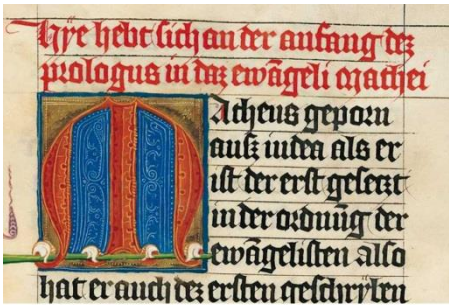 Hÿe hebt sich an der anfang dez
prologus in daz ewãgeli Mathei
Matheus geporn
ausz iudea als er
ist der erst geseczt
in der ordnũg der
ewãgelisten also
hat er auch dez ersten geschryben